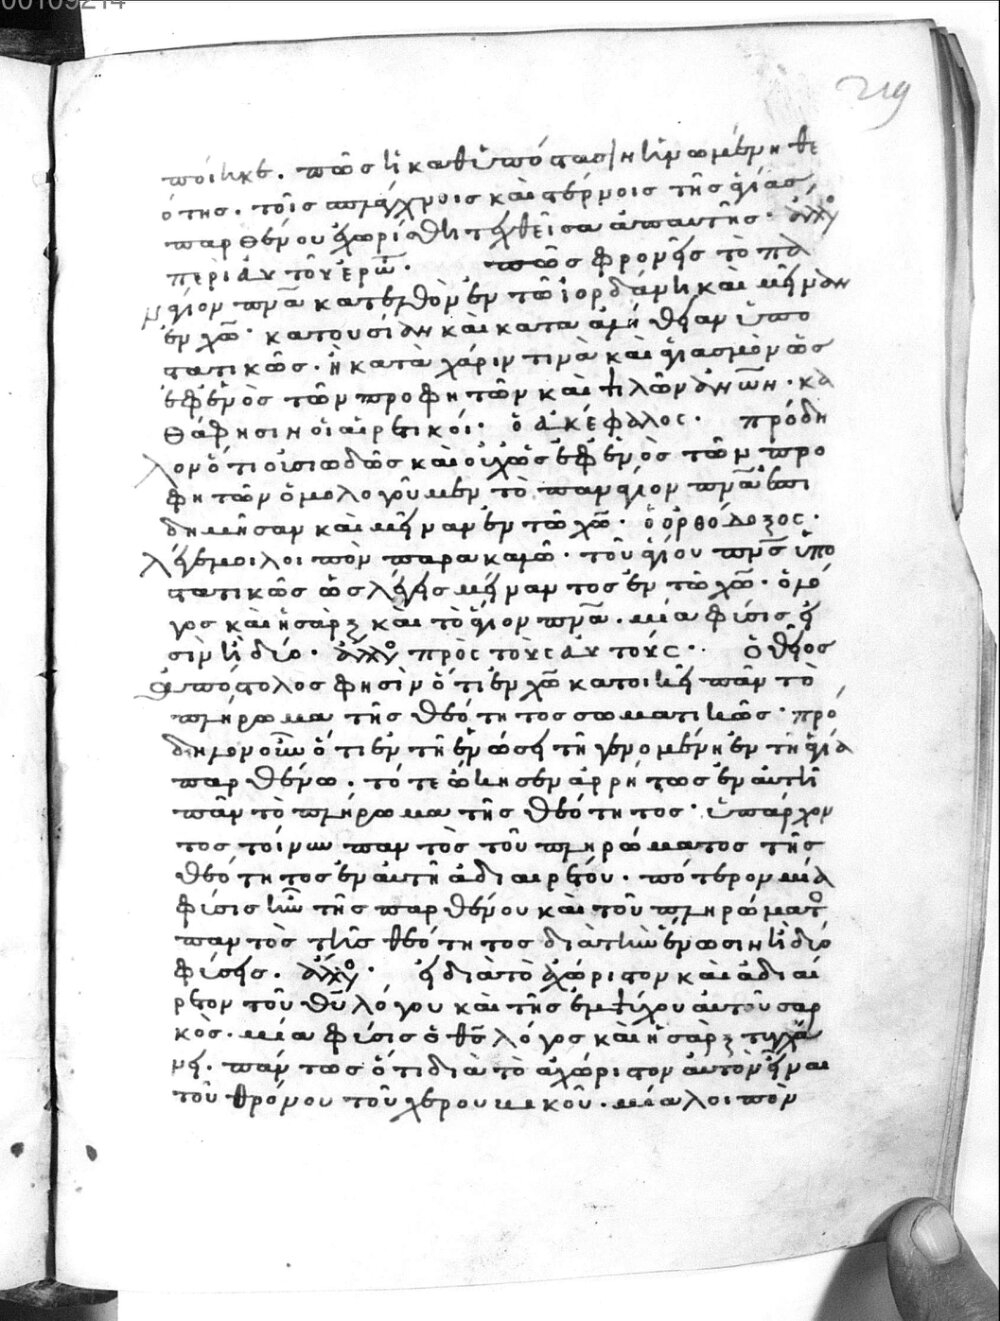 00109214
219
ποίηκε. πῶς ἡ καθ' ὑπόστασ‖ ἡνωμένη θε
ότης. τοῖς σπλάχνοις καὶ τέρμοις τῆς ἁγίας
παρθένου ἐχωρίσθη τεχθεῖσα ἀπ' αυτῆς.
περὶ ἁυτοῦ ἐρῶ. πῶς φρονεῖς τὸ πα
νάγιον πνᾶ κατελθὸν ἐν τῶ ἰορδάνη καὶ μεῖναν
ἐν χῶ. κατουσίαν καὶ κατα ἀμήθειαν ὑπο
στατικῶς. ἢ κατὰ χάριν τινὰ καὶ ἁγιασμὸν ὡς
ἐφ' ἑνὸς τῶν προφητῶν καὶ ψιλῶν ἀνῶν. κα
θά φησιν οἱ αἱρετικοί. ὁ ἀκέφαλος. πρόδη
λον ὅτι οὐσιωδῶς καὶ οὐχ ὡς ἐφ' ἑνὸς τῶν προ
φητῶν ὁμολογοῦμεν τὸ πανάγιον πνᾶ ἐπι
δημῆσαν καὶ μεῖναν ἐν τῶ χῶ. ὁ ὀρθόδοξος.
λέγε μοι λοιπὸν παρακαλῶ. τοῦ ἁγίου πνς ὑπο
στατικῶς ὡς λέγεις μείναντος ἐν τῶ χῶ. ὁ λό
γος καὶ ἡ σὰρξ καὶ τὸ ἅγιον πνᾶ. μία φύσις εἰ
σὶν ἢ δύο. πρὸς τοὺς ἁυτούς. ὁ θεῖος
ἀπόστολός φησὶν ὅτι ἐν χῶ κατοικεῖ πᾶν τὸ
πλήρωμα τῆς θεότητος σωματικῶς. πρό
δηλον οὖν ὅτι ἐν τῆ ἑνώσει τῆ γενομένη ἐν τῆ ἁγία
παρθένω. τότε ὤκησεν ἀρρήτως ἐν ἀυτῆ
πᾶν τὸ πλήρωμα τῆς θεότητος. ὑπάρχον
τος τοίνυν παντὸς τοῦ πληρώματος τῆς
θεότητος ἐν ἀυτῆ ἀδιαιρέτου. πότερον μία
φύσις ἦν τῆς παρθένου καὶ τοῦ πληρώματο
παντὸς τῆς θεότητος διὰ τὴν ἕνωσιν ἢ δύο
φύσεις. εἰ διὰ τὸ ἀχώριστον καὶ ἀδιαί
ρετον τοῦ θῦ λόγου καὶ τῆς ἐμψύχου ἀυτοῦ σαρ
κὸς. μία φύσις ὁ θς λόγος καὶ ἡ σὰρξ τυγχά
νει. πάντως ὅτι διὰ τὸ ἀχώριστον ἀυτὸν εἶναι
τοῦ θρόνου τοῦ χερουικοῦ. μία λοιπὸν